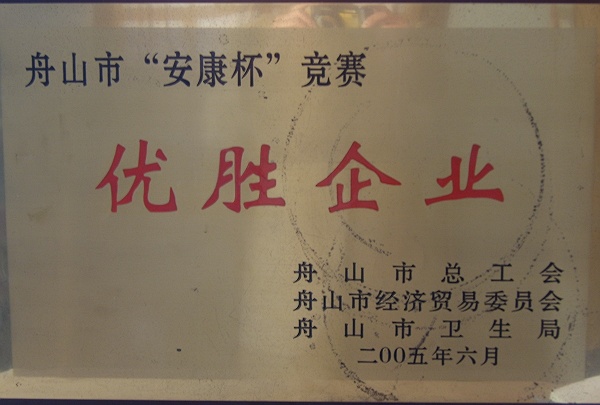 舟山市“安康杯”竞赛
优胜企业
舟山市总工会
舟山市经济贸易委员会
舟山市卫生局
二00五年六月